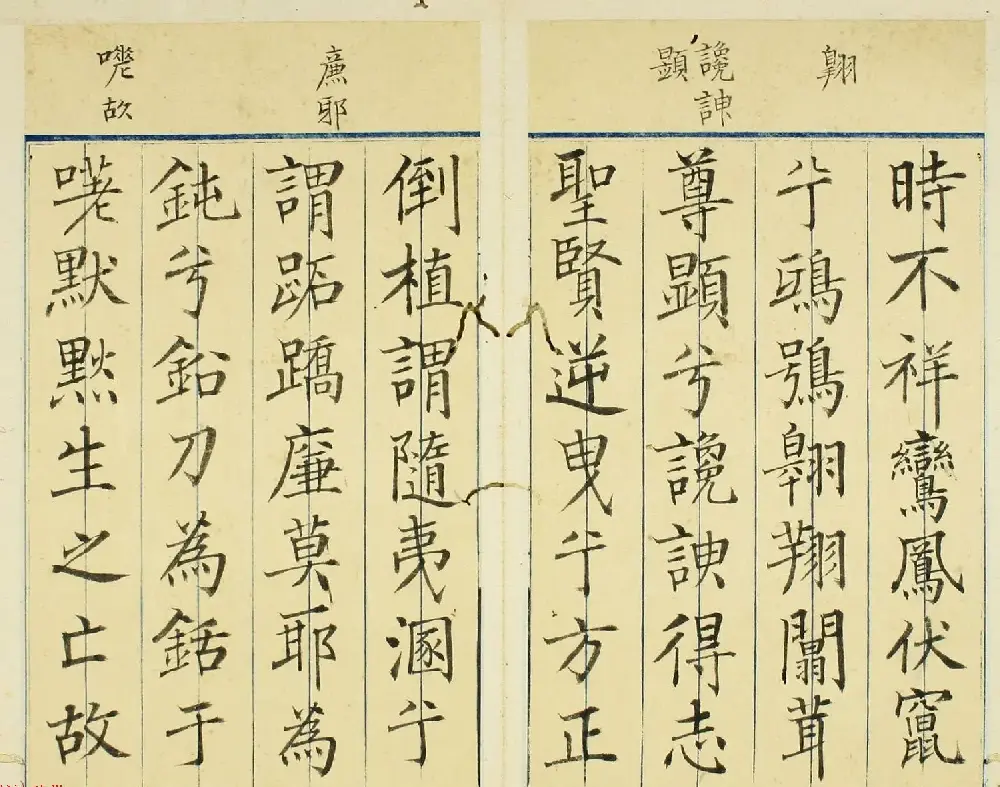 翺
讒諛
顯
廉邪
嗟故
時不祥鸞鳳伏竄
兮鴟鴞翺翔闒茸
尊顯兮讒諛得志
聖賢逆曳兮方正
倒植謂隨夷溷兮
謂跖蹻廉莫耶為
鈍兮鉛刀為銛于
嗟默默生之亡故